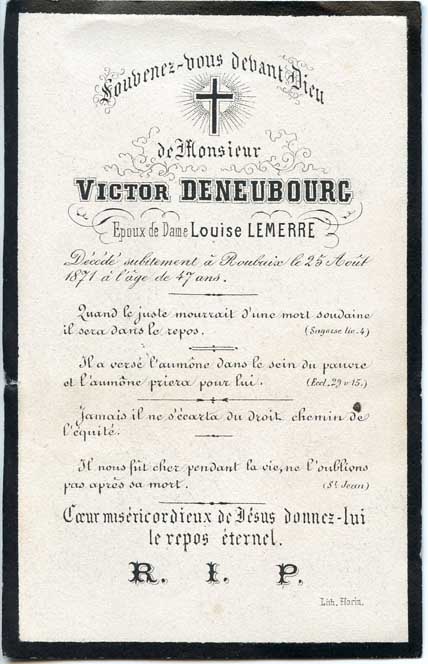 Souvenez-vous devant Dieu
de Monsieur
VICTOR DENEUBOURG
Epoux de Dame Louise LEMERRE
Décédé subitement à Roubaix le 25 Août
1871 à l'âge de 47 ans.
Quand le juste mourrait d'une mort soudaine
il sera dans le repos. (Sagesse liv. 4)
Il a versé l'aumône dans le sein du pauvre
et l'aumône priera pour lui. (Eccl. 29 v 15.)
Jamais il ne s'écarta du droit chemin de
l'équité.
Il nous fut cher pendant la vie, ne l'oublions
pas après sa mort. (St Jean)
Cœur miséricordieux de Jésus donnez-lui
le repos éternel.
R. I. P.
Lith.